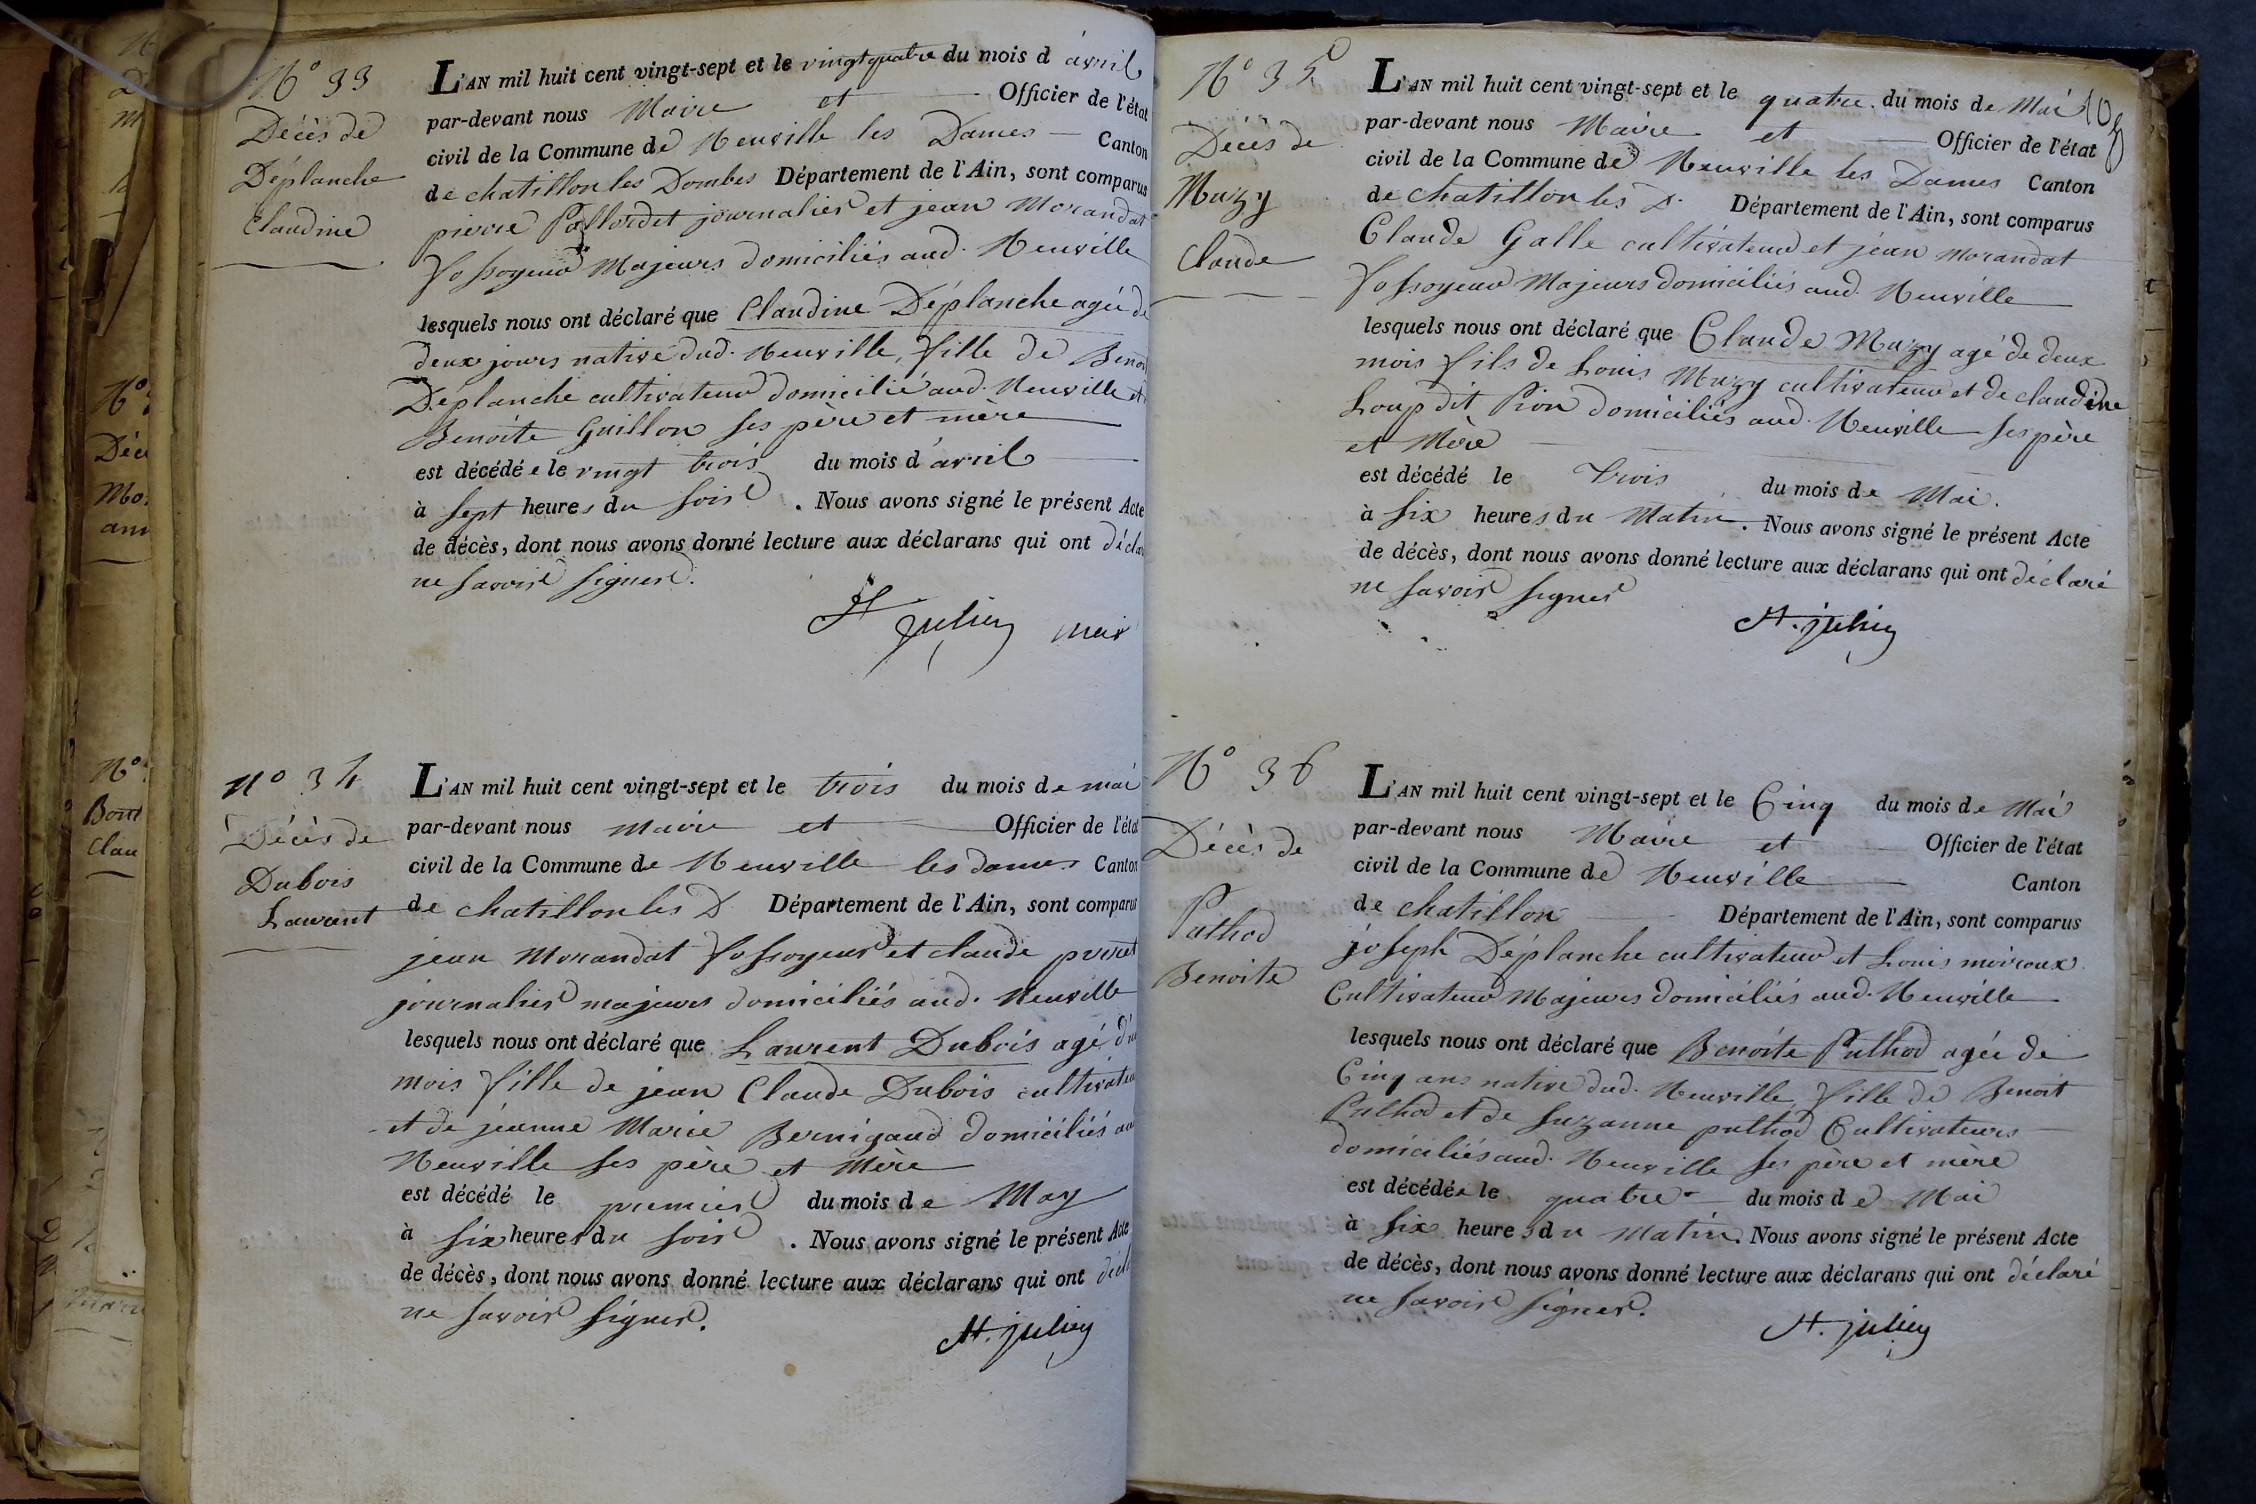 N° 33
Décès de
Déplanche
Claudine
L'AN mil huit cent vingt-sept et le vingt quatre du mois d avril
par-devant nous Maire et Officier de l'état
civil de la Commune de Neuville les Dames Canton
de chatillon les Dombes Département de l'Ain, sont comparus
pierre journalier et jean Morandat
fossoyeur Majeurs domiciliés aud. Neuville
lesquels nous ont déclaré que Claudine Déplanche agée de
deux jours native dud. Neuville, fille de Benoit
Déplanche cultivateur domicilié aud. Neuville et
Benoite Guillon ses père et mère
est décédée le vingt trois du mois d'avril
à sept heures du soir. Nous avons signé le présent Acte
de décès, dont nous avons donné lecture aux déclarans qui ont
ne savoir signer.
St julien
N° 34
Décès de
Dubois
Laurent
L'AN mil huit cent vingt-sept et le trois du mois de mai
par-devant nous maire et Officier de l'état
civil de la Commune de Neuville les dames Canton
de chatillon les D Département de l'Ain, sont comparus
jean Morandat fossoyeur et claude
journalier majeurs domiciliés aud. Neuville
lesquels nous ont déclaré que Laurent Dubois agé d'un
mois fille de jean Claude Dubois cultivateur
et de jeanne Marie Bernigaud domiciliés
Neuville ses père et Mère
est décédé le premier du mois de May
à six heures du soir. Nous avons signé le présent Acte
de décès, dont nous avons donné lecture aux déclarans qui ont
ne savoir signer.
St. julien
N° 35
Décès de
Muzy
Claude
L'AN mil huit cent vingt-sept et le quatre du mois de Mai
par-devant nous Maire et Officier de l'état
civil de la Commune de Neuville les Dames Canton
de chatillon les D. Département de l'Ain, sont comparus
Claude Galle cultivateur et jean Morandat
fossoyeur Majeurs domiciliés aud. Neuville
lesquels nous ont déclaré que Claude Muzy agé de deux
mois fils de Louis Muzy cultivateur et de claudine
Loup dit Pion domiciliés aud. Neuville ses père
et Mère
est décédé le trois du mois de Mai.
à six heures du Matin. Nous avons signé le présent Acte
de décès, dont nous avons donné lecture aux déclarans qui ont déclaré
ne savoir signer
St. julien
N° 36
Décès de
Puthod
Benoite
L'AN mil huit cent vingt-sept et le Cinq du mois de Mai
par-devant nous Maire et Officier de l'état
civil de la Commune de Neuville Canton
de chatillon Département de l'Ain, sont comparus
joseph Déplanche cultivateur et Louis moiroux
Cultivateur Majeurs domiciliés aud. Neuville
lesquels nous ont déclaré que Benoite Puthod agée de
Cinq ans native dud. Neuville, fille de Benoit
Puthod et de Suzanne puthod Cultivateurs
domiciliés aud. Neuville ses père et mère
est décédée le quatre du mois de Mai
à six heures du Matin. Nous avons signé le présent Acte
de décès, dont nous avons donné lecture aux déclarans qui ont déclaré
ne savoir signer.
St. julien